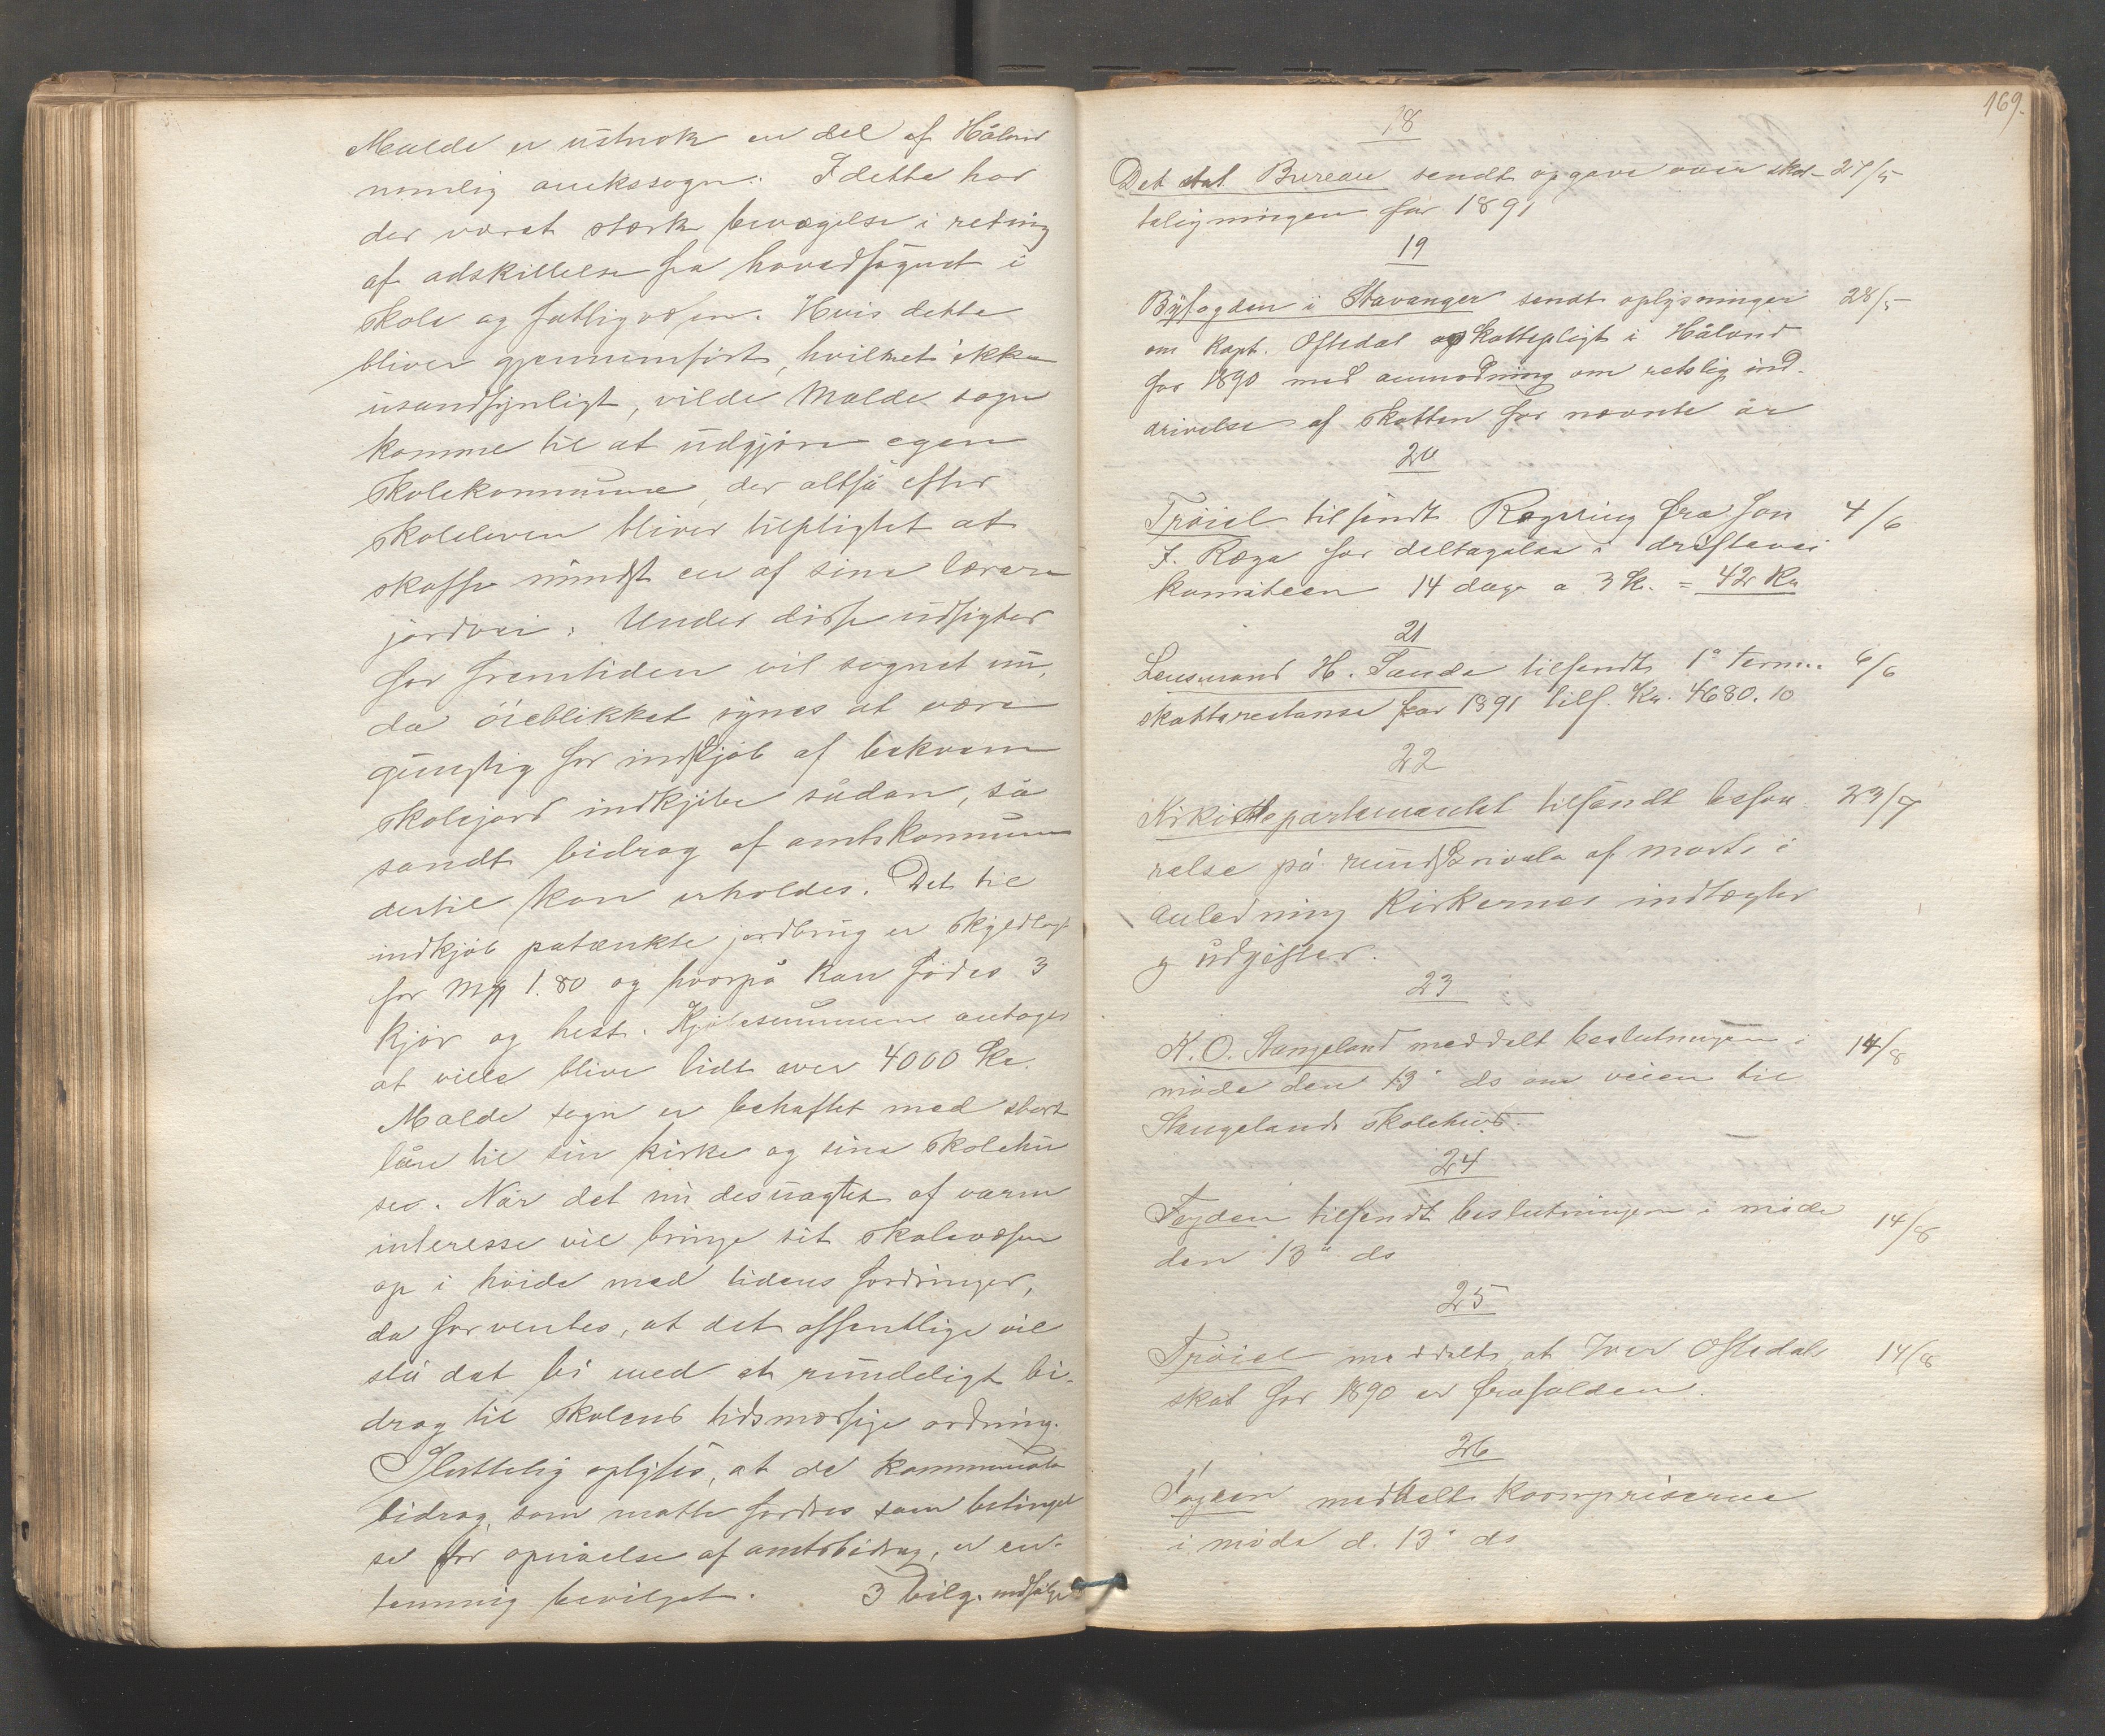 Malde er ustrok en del af Håland
nemlig anekssogn. I dette har
der været stærk bevægelse i retning
af adskillelse fra hovedsognet i
skole og fattigvæsen. Hvis dette
bliver gjennemført, hvilket ikke
usandsynligt, vilde Malde sogn
komme til at udgjøre egen
skolekommune, der altså efter
skoleloven bliver tilpligtet at
skaffe mindst en af sine lærere
jordvei. Under disse udsigter
for fremtiden vil sognet nu,
da öieblikket synes at være
gunstig for indkjöb af bekvem
skolejord indkjöbe sådan, så
sandt bidrag af amtskommunen
dertil kan erholdes. Det til
indkjöb patænkte jordbrug er skyldlagt
for Mk 1.80 og hvorpå kan födes 3
kjör og hest. Kjöbesummen antages
at ville blive lidt over 4000 Kr.
Malde sogn er behæftet med stort
lån til sin kirke og sine skolehu
ses. Når det nu desuagtet af varm
interesse vil bringe sit skolevæsen
op i höide med tidens fordringer,
da forventes, at det offentlige vil
stå det bi med et rundeligt bi-
drag til skolens tidsmæssige ordning.
Sluttelig oplyses, at de kommunale
bidrag, som matte fordres som betingel
se for opnåelse af amtsbidrag, er en-
stemmig bevilget. 3 bilg. medfölge
169.
18
Det stat Bureau sendt opgave over skat- 27/5
teligningen for 1891
19
Byfogden i Stavanger sendt oplysninger 28/5
om Kapt. Oftedal skattepligt i Håland
for 1890 med anmodning om retslig ind-
drivelse af skatten for nævnte år
20
Tröiel tilsendt Regning fra Jon 4/6
J. Ræge for deltagelse i driftevei
komiteen 14 dage a 3 Kr. = 42 Kr
21
Lensmand H. Sande tilsendt 1ª Termin 6/6
skatterestanse for 1891 tils. Kr. 4680.10
22
Kirkedepartementet tilsendt besva 23/7
relse på rundskrivele af marts i
anledning Kirkernes indtægter
og udgifter.
23
K. O. Stangeland meddelt beslutningen i 14/8
möde den 13. ds om veien til
Stangelands skolehus.
24
Fogden tilsendt beslutningen i möde 14/8
den 13. ds
25
Tröiel meddelt, at Iver Oftedals 14/8
skat for 1890 er frafalden.
26
Fogden meddelt Kornpriserne
i möde d. 13. ds